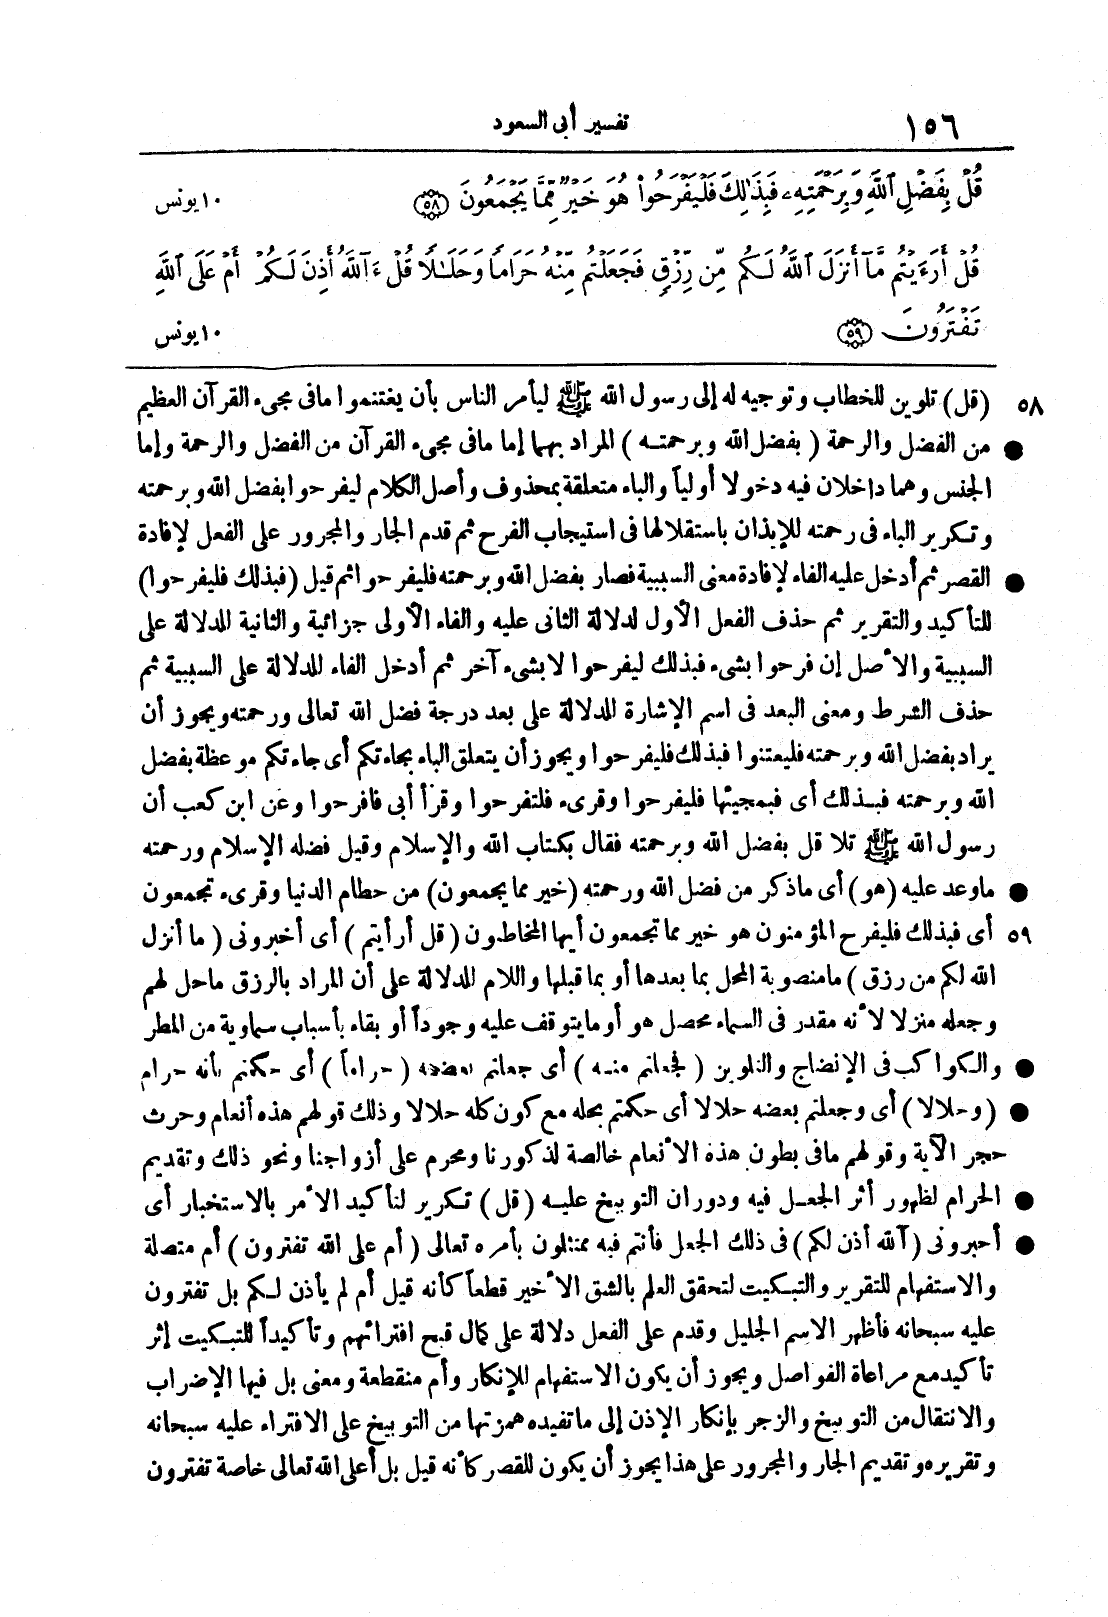 ١٥٦
تفسير أبى السعود
قُلْ بِفَضْلِ ٱللَّهِ وَبِرَحْمَتِهِۦ فَبِذَٰلِكَ فَلْيَفْرَحُوا۟ هُوَ خَيْرٌ مِّمَّا يَجْمَعُونَ ﴿٥٨﴾ ١٠ يونس
قُلْ أَرَءَيْتُم مَّآ أَنزَلَ ٱللَّهُ لَكُم مِّن رِّزْقٍ فَجَعَلْتُم مِّنْهُ حَرَامًا وَحَلَٰلًا قُلْ ءَآللَّهُ أَذِنَ لَكُمْ أَمْ عَلَى ٱللَّهِ
تَفْتَرُونَ ﴿٥٩﴾ ١٠ يونس
٥٨ (قل) تلوين للخطاب وتوجيه له إلى رسول الله ﷺ ليأمر الناس بأن يغتنموا مافى مجىء القرآن العظيم
● من الفضل والرحمة ( بفضل الله وبرحمته ) المراد بهما إما مافى مجىء القرآن من الفضل والرحمة وإما
الجنس وهما داخلان فيه دخولا أولياً والباء متعلقة بمحذوف وأصل الكلام ليفرحوا بفضل الله وبرحمته
وتكرير الباء فى رحمته للإيذان باستقلالها فى استيجاب الفرح ثم قدم الجار والمجرور على الفعل لإفادة
● القصر ثم أدخل عليه الفاء لإفادة معنى السببية فصار بفضل الله وبرحمته فليفرحوا ثم قيل (فبذلك فليفرحوا)
للتأكيد والتقرير ثم حذف الفعل الأول لدلالة الثانى عليه والفاء الأولى جزائية والثانية للدلالة على
السببية والأصل إن فرحوا بشىء فبذلك ليفرحوا لا بشىء آخر ثم أدخل الفاء للدلالة على السببية ثم
حذف الشرط ومعنى البعد فى اسم الإشارة للدلالة على بعد درجة فضل الله تعالى ورحمته ويجوز أن
يراد بفضل الله وبرحمته فليعتنوا فبذلك فليفرحوا ويجوز أن يتعلق الباء بجاءتكم أى جاءتكم موعظة بفضل
الله وبرحمته فبذلك أى فبمجيئها فليفرحوا وقرىء فلتفرحوا وقرأ أبى فافرحوا وعن ابن كعب أن
رسول الله ﷺ تلا قل بفضل الله وبرحمته فقال بكتاب الله والإسلام وقيل فضله الإسلام ورحمته
● ماوعد عليه (هو) أى ماذكر من فضل الله ورحمته (خير مما يجمعون) من حطام الدنيا وقرىء تجمعون
٥٩ أى فبذلك فليفرح المؤمنون هو خير مما تجمعون أيها المخاطبون (قل أرأيتم ) أى أخبرونى ( ما أنزل
الله لكم من رزق ) مامنصوبة المحل بما بعدها أو بما قبلها واللام للدلالة على أن المراد بالرزق ماحل لهم
وجعله منزلا لأنه مقدر فى السماء محصل هو أو مايتوقف عليه وجوداً أو بقاء بأسباب سماوية من المطر
● والكواكب فى الإنضاج والتلوين ( فجعلتم منه ) أى جعلتم بعضه ( حراماً ) أى حكمتم بأنه حرام
● (وحلالا ) أى وجعلتم بعضه حلالا أى حكمتم بحله مع كون كله حلالا وذلك قولهم هذه أنعام وحرث
حجر الآية وقولهم مافى بطون هذه الأنعام خالصة لذكورنا ومحرم على أزواجنا ونحو ذلك وتقديم
● الحرام لظهور أثر الجعل فيه ودوران التوبيخ عليه (قل ) تكرير لتأكيد الأمر بالاستخبار أى
● أخبرونى (آلله أذن لكم) فى ذلك الجعل فأنتم فيه ممتثلون بأمره تعالى ( أم على الله تفترون ) أم متصلة
والاستفهام للتقرير والتبكيت لتحقق العلم بالشق الأخير قطعاً كأنه قيل أم لم يأذن لكم بل تفترون
عليه سبحانه فأظهر الاسم الجليل وقدم على الفعل دلالة على كمال قبح افترائهم وتأكيداً للتبكيت إثر
تأكيد مع مراعاة الفواصل ويجوز أن يكون الاستفهام للإنكار وأم منقطعة ومعنى بل فيها الإضراب
والانتقال من التوبيخ والزجر بإنكار الإذن إلى ماتفيده همزتها من التوبيخ على الافتراء عليه سبحانه
وتقريره وتقديم الجار والمجرور على هذا يجوز أن يكون للقصر كأنه قيل بل أعلى الله تعالى خاصة تفترون